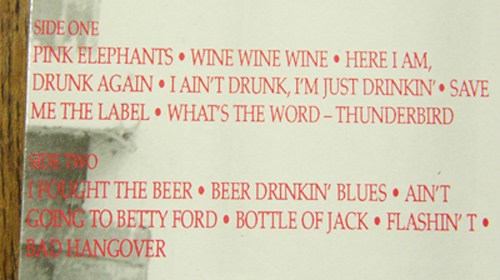 SIDE ONE
PINK ELEPHANTS • WINE WINE WINE • HERE I AM,
DRUNK AGAIN • I AIN'T DRUNK, I'M JUST DRINKIN' • SAVE
ME THE LABEL • WHAT'S THE WORD – THUNDERBIRD
SIDE TWO
I FOUGHT THE BEER • BEER DRINKIN' BLUES • AIN'T
GOING TO BETTY FORD • BOTTLE OF JACK • FLASHIN' T •
BAD HANGOVER